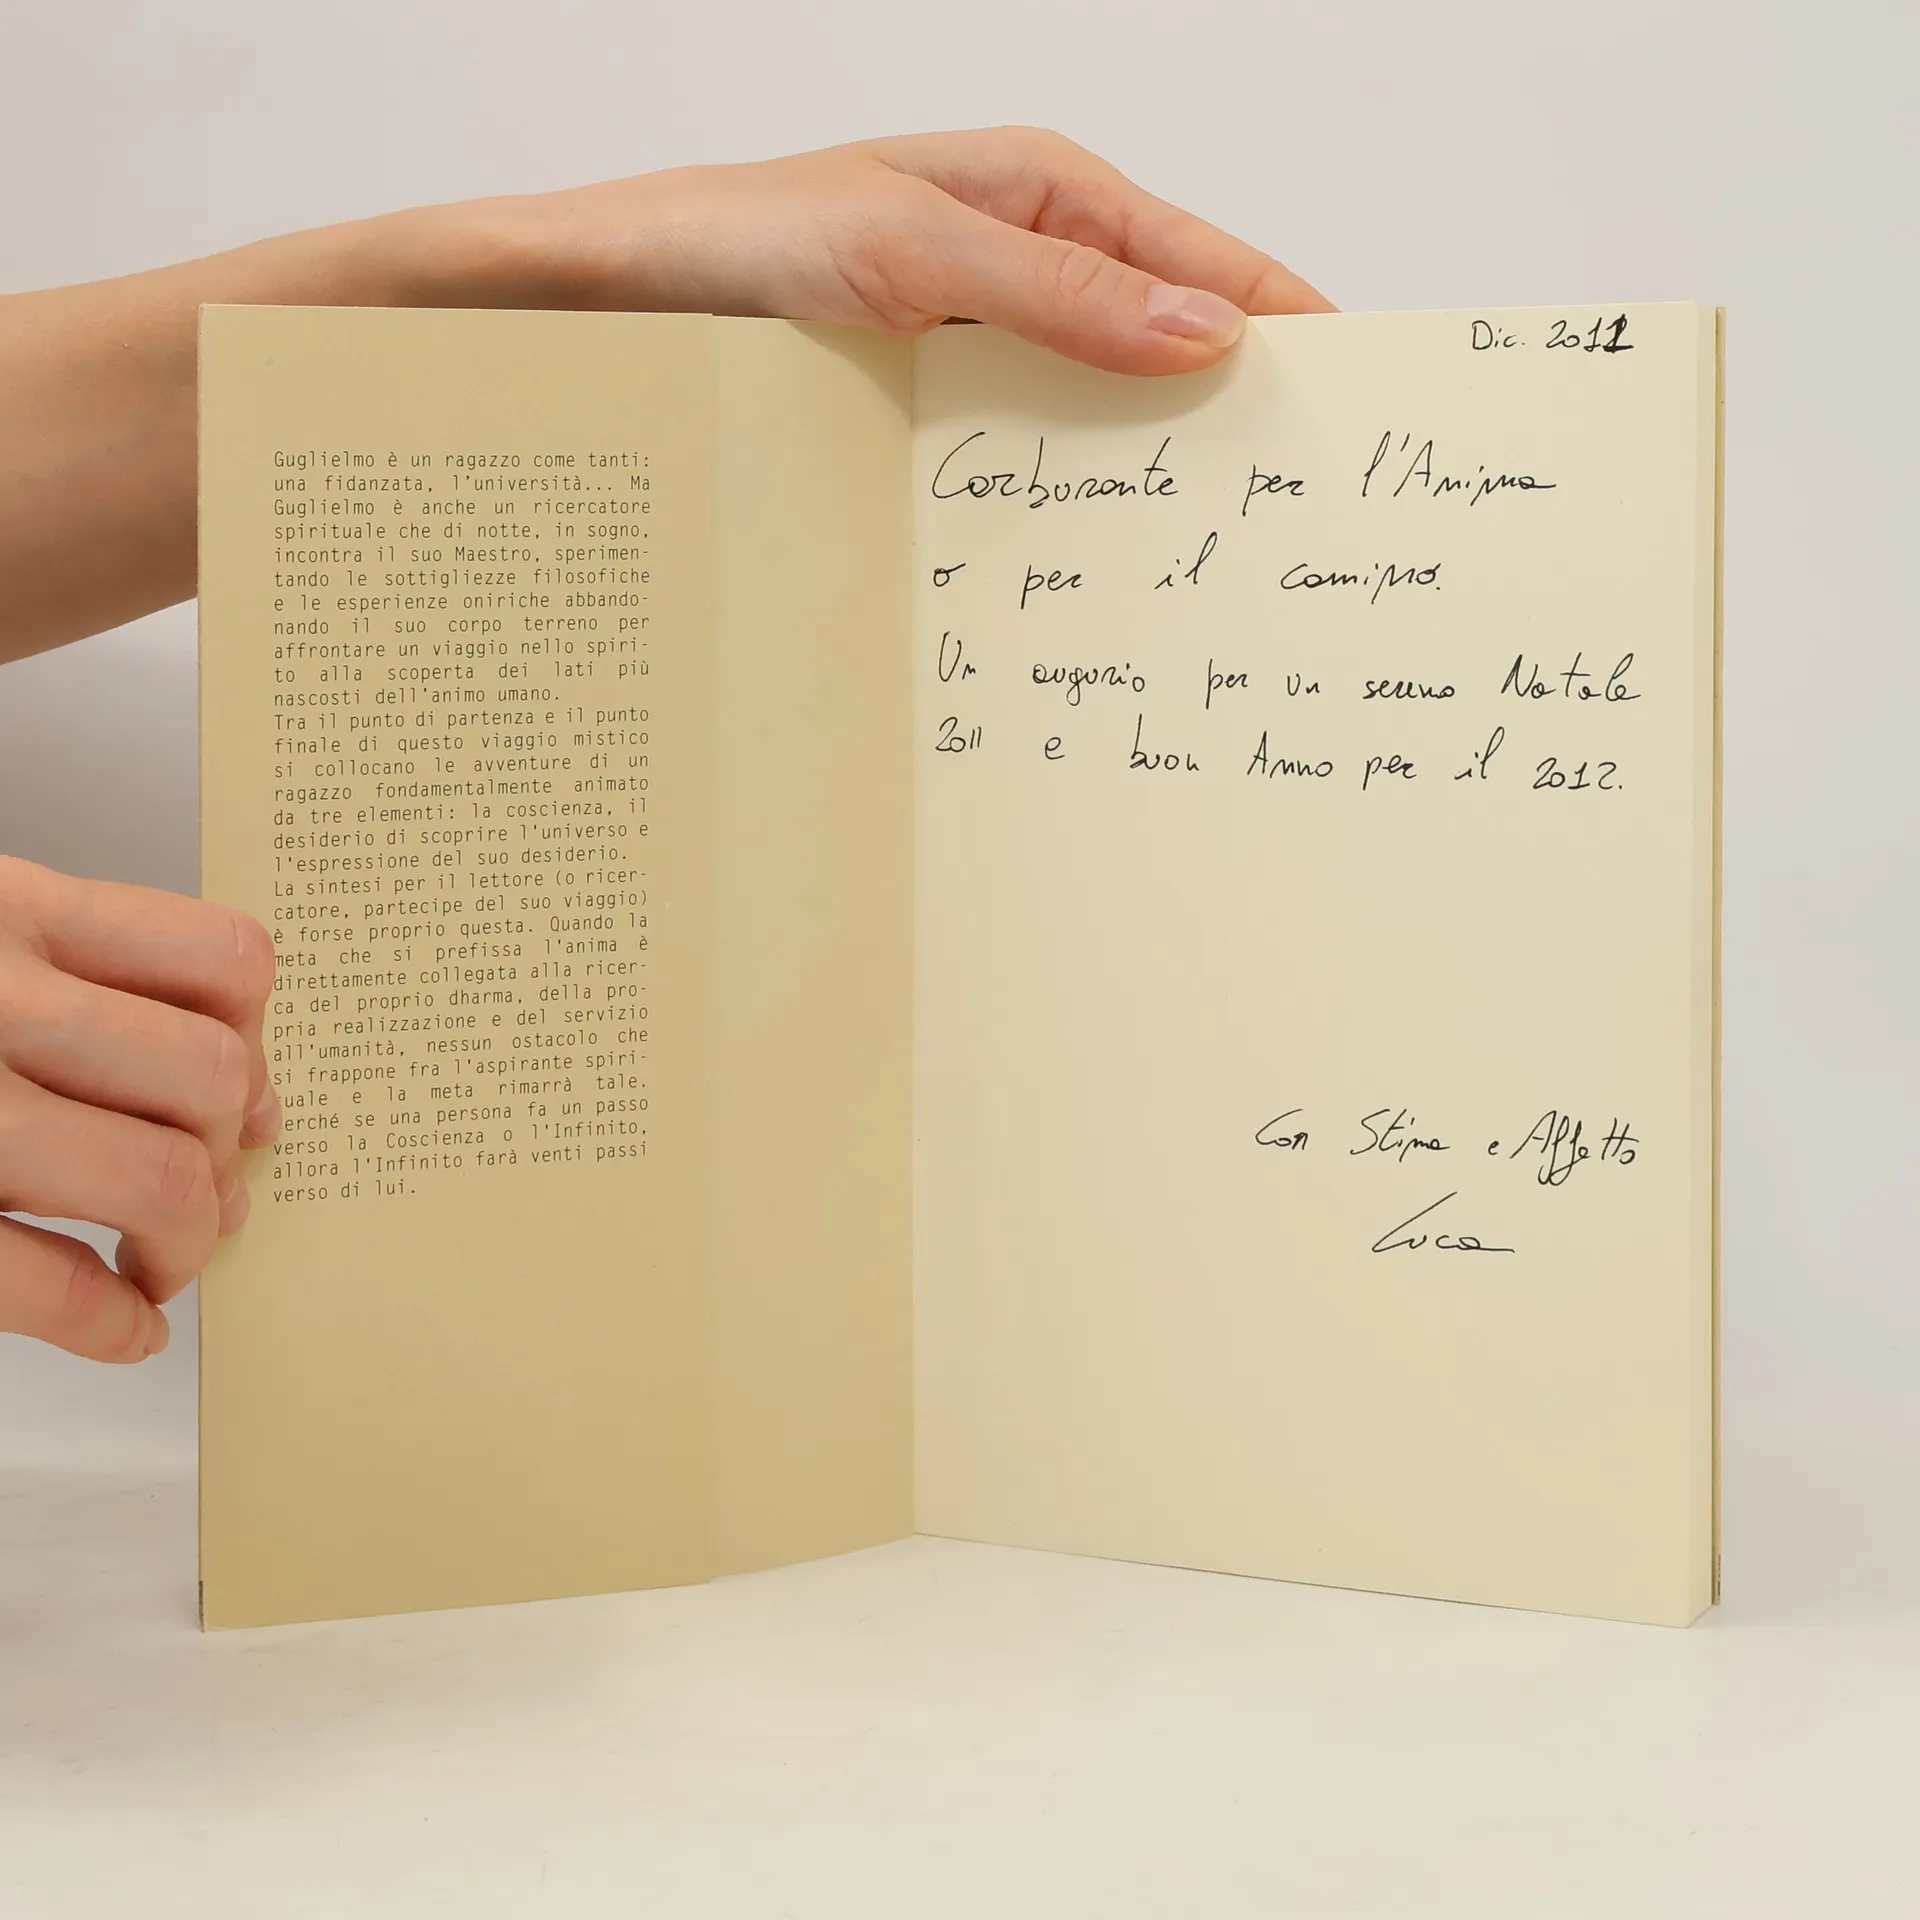 Guglielmo è un ragazzo come tanti:
una fidanzata, l'università... Ma
Guglielmo è anche un ricercatore
spirituale che di notte, in sogno,
incontra il suo Maestro, sperimen-
tando le sottigliezze filosofiche
e le esperienze oniriche abbando-
nando il suo corpo terreno per
affrontare un viaggio nello spiri-
to alla scoperta dei lati più
nascosti dell'animo umano.
Tra il punto di partenza e il punto
finale di questo viaggio mistico
si collocano le avventure di un
ragazzo fondamentalmente animato
da tre elementi: la coscienza, il
desiderio di scoprire l'universo e
l'espressione del suo desiderio.
La sintesi per il lettore (o ricer-
catore, partecipe del suo viaggio)
è forse proprio questa. Quando la
meta che si prefissa l'anima è
direttamente collegata alla ricer-
ca del proprio dharma, della pro-
pria realizzazione e del servizio
all'umanità, nessun ostacolo che
si frappone fra l'aspirante spiri-
tuale e la meta rimarrà tale.
erché se una persona fa un passo
verso la Coscienza o l'Infinito,
allora l'Infinito farà venti passi
verso di lui.
Dic. 2011
Carburante per l'Anima
o per il camino.
Un augurio per un sereno Natale
2011 e buon Anno per il 2012.
Con Stima e Affetto
Luca